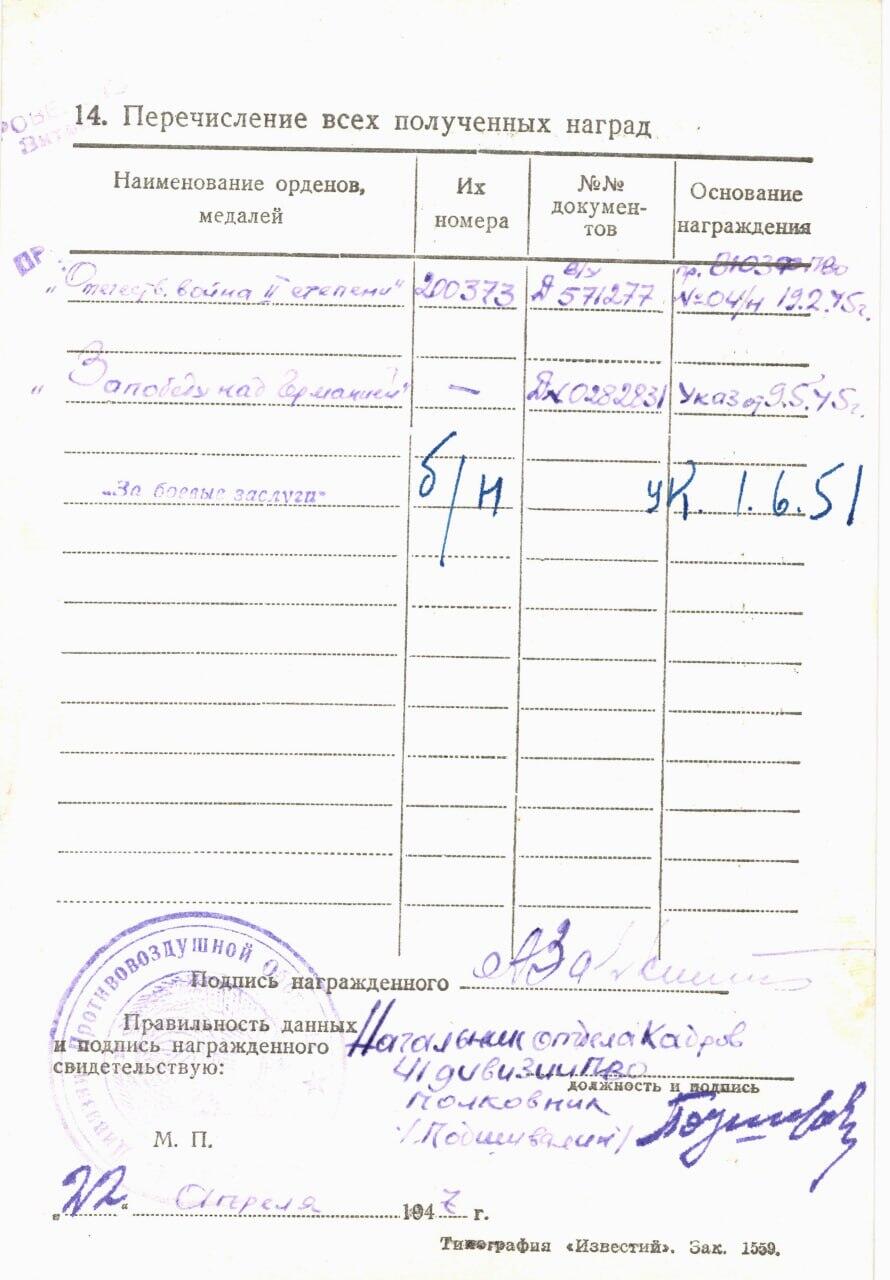 14. Перечисление всех полученных наград
Наименование орденов, медалей
Их номера
№№ докумен-тов
Основание награждения
„Отечеств. война II степени" 200373 в/у Д 571277 пр. ПВО №04/н 19.2.45г.
„За победу над Германией" — 0282831 Указ от 9.5.45г.
„За боевые заслуги" б/н ук. 1.6.51
Противовоздушной
Подпись награжденного
Правильность данных Начальник отдела кадров
и подпись награжденного 41 дивизии ПВО
свидетельствую:
должность и подпись
Полковник
/Подшивалин/
М. П.
„22" Апреля 1947 г.
Типография «Известий». Зак. 1559.